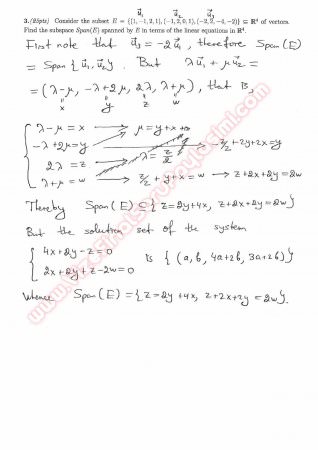 u⃗₁ u⃗₂ u⃗₃
3.(25pts) Consider the subset E = {(1, −1, 2, 1), (−1, 2, 0, 1), (−2, 2, −4, −2)} ⊆ ℝ⁴ of vectors.
Find the subspace Span(E) spanned by E in terms of the linear equations in ℝ⁴.
First note that u⃗₃ = −2u⃗₁, therefore Span(E)
= Span{u⃗₁, u⃗₂}. But λu⃗₁ + μu⃗₂ =
= (λ−μ, −λ+2μ, 2λ, λ+μ), that is
x y z w
λ−μ = x → μ = y + x
−λ+2μ = y → −z/2 + 2y + 2x = y
2λ = z → λ = z/2
λ+μ = w → z/2 + y + x = w → z + 2x + 2y = 2w
Thereby Span(E) ⊆ {z = 2y + 4x, z + 2x + 2y = 2w}
But the solution set of the system
4x + 2y − z = 0
2x + 2y + z − 2w = 0
is {(a, b, 4a+2b, 3a+2b)}
Whence Span(E) = {z = 2y + 4x, z + 2x + 2y = 2w}.